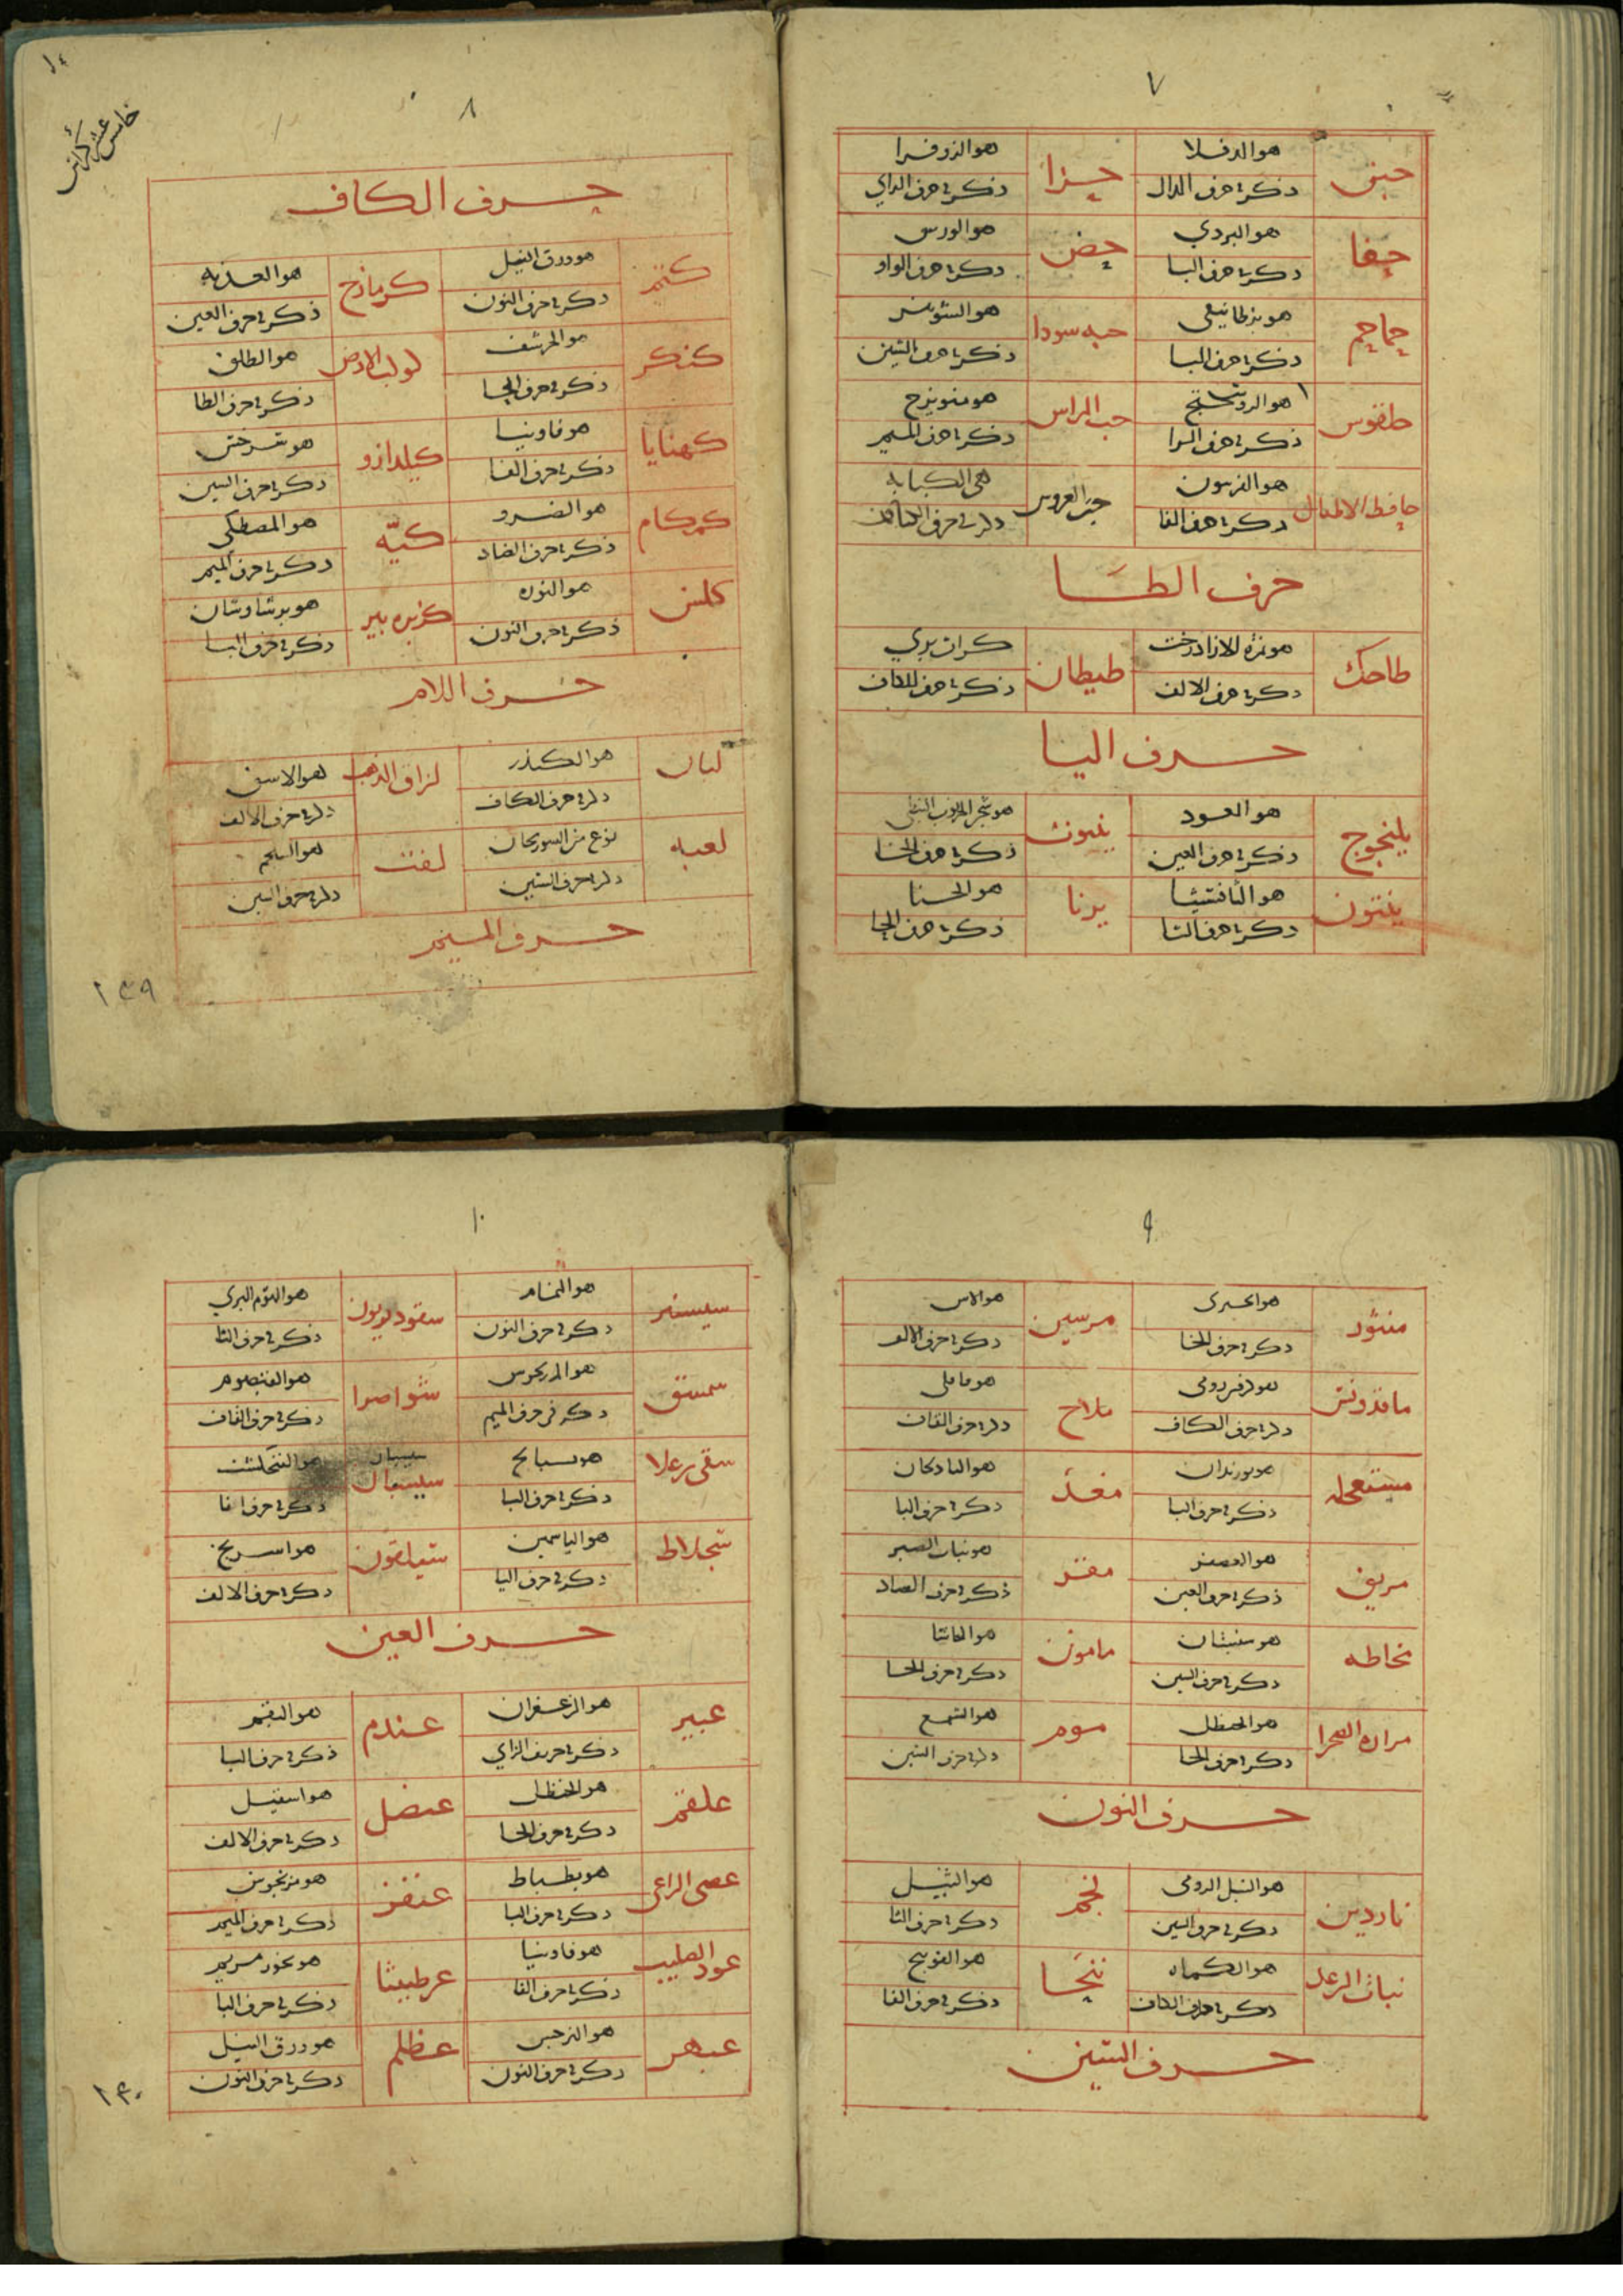 ٧
حبق
هو الدفلا
ذكر في حرف الدال
حزا
هو الزوفرا
ذكر في حرف الزاي
حفا
هو البردي
ذكر في حرف البا
حض
هو الورس
ذكر في حرف الواو
حماحم
ذكر في حرف البا
حبه سودا
هو الشونيز
ذكر في حرف الشين
ذكر في حرف الرا
حب الراس
هو ميويزج
ذكر في حرف الميم
حافظ الاطفال
ذكر في حرف الفا
حب العروس
هي الكبابه
ذكر في حرف الكاف
حرف الطا
طاحك
هو ثمرة الازادرخت
ذكر في حرف الالف
طيطان
كراث بري
ذكر في حرف الكاف
حرف اليا
يلنجوج
هو العود
ذكر في حرف العين
ينبوت
هو شجر الخرنوب النبطي
ذكر في حرف الخا
ينتون
هو الثافسيا
ذكر في حرف الثا
يرنا
هو الحنا
ذكر في حرف الحا
٨
خامس عشر كراس
حرف الكاف
كتم
هو ورق النيل
ذكر في حرف النون
كزمازج
هو العذبه
ذكر في حرف العين
كنكر
هو الحرشف
ذكر في حرف الحا
كوكب الارض
هو الطلق
ذكر في حرف الطا
كهنايا
هو فاونيا
ذكر في حرف الفا
كيلدارو
هو سرخس
ذكر في حرف السين
كمكام
هو الضرو
ذكر في حرف الضاد
كيّه
هو المصطكى
ذكر في حرف الميم
كلس
هو النوره
ذكر في حرف النون
كزبره بير
هو برشاوشان
ذكر في حرف البا
حرف اللام
لبان
هو الكندر
ذكر في حرف الكاف
لزاق الذهب
هو الاشق
ذكر في حرف الالف
لعبه
نوع من السورنجان
ذكر في حرف السين
لفت
هو السلجم
ذكر في حرف السين
حرف الميم
١٣٩
٩
منثور
هو الخيري
ذكر في حرف الخا
مرسين
هو الاس
ذكر في حرف الالف
ماقدونس
هو كرفس رومي
ذكر في حرف الكاف
ملاح
هو قاقلي
ذكر في حرف القاف
مستعجله
هو بوزندان
ذكر في حرف البا
مغد
هو البادنجان
ذكر في حرف البا
مريق
هو العصفر
ذكر في حرف العين
مقر
هو نبات الصبر
ذكر في حرف الصاد
مخاطه
هو سبستان
ذكر في حرف السين
مامون
هو الحاشا
ذكر في حرف الحا
مراره الصحرا
هو الحنظل
ذكر في حرف الحا
موم
هو الشمع
ذكر في حرف الشين
حرف النون
ناردين
هو السنبل الرومي
ذكر في حرف السين
نجم
هو الثيل
ذكر في حرف الثا
نبات الرعد
هو الكماه
ذكر في حرف الكاف
هو الفوتنج
ذكر في حرف الفا
حرف السين
١٠
سيسنبر
هو النمام
ذكر في حرف النون
سقورديون
هو الثوم البري
ذكر في حرف الثا
سمسق
هو المرزنجوش
ذكر في حرف الميم
شواصرا
هو القيصوم
ذكر في حرف القاف
هو بسبايج
ذكر في حرف البا
سيسبان
سيسبان
هو الفنجنكشت
ذكر في حرف الفا
سجلاط
هو الياسمين
ذكر في حرف اليا
سيلقون
هو اسرنج
ذكر في حرف الالف
حرف العين
عبير
هو الزعفران
ذكر في حرف الزاي
عندم
هو البقم
ذكر في حرف البا
علقم
هو الحنظل
ذكر في حرف الحا
عنصل
هو اسقيل
ذكر في حرف الالف
عصى الراعي
هو بطباط
ذكر في حرف البا
عنقز
هو مرزنجوش
ذكر في حرف الميم
عود الصليب
هو فاونيا
ذكر في حرف الفا
عرطنيثا
هو بخور مريم
ذكر في حرف البا
عبهر
هو النرجس
ذكر في حرف النون
عظلم
هو ورق النيل
ذكر في حرف النون
١٤٠